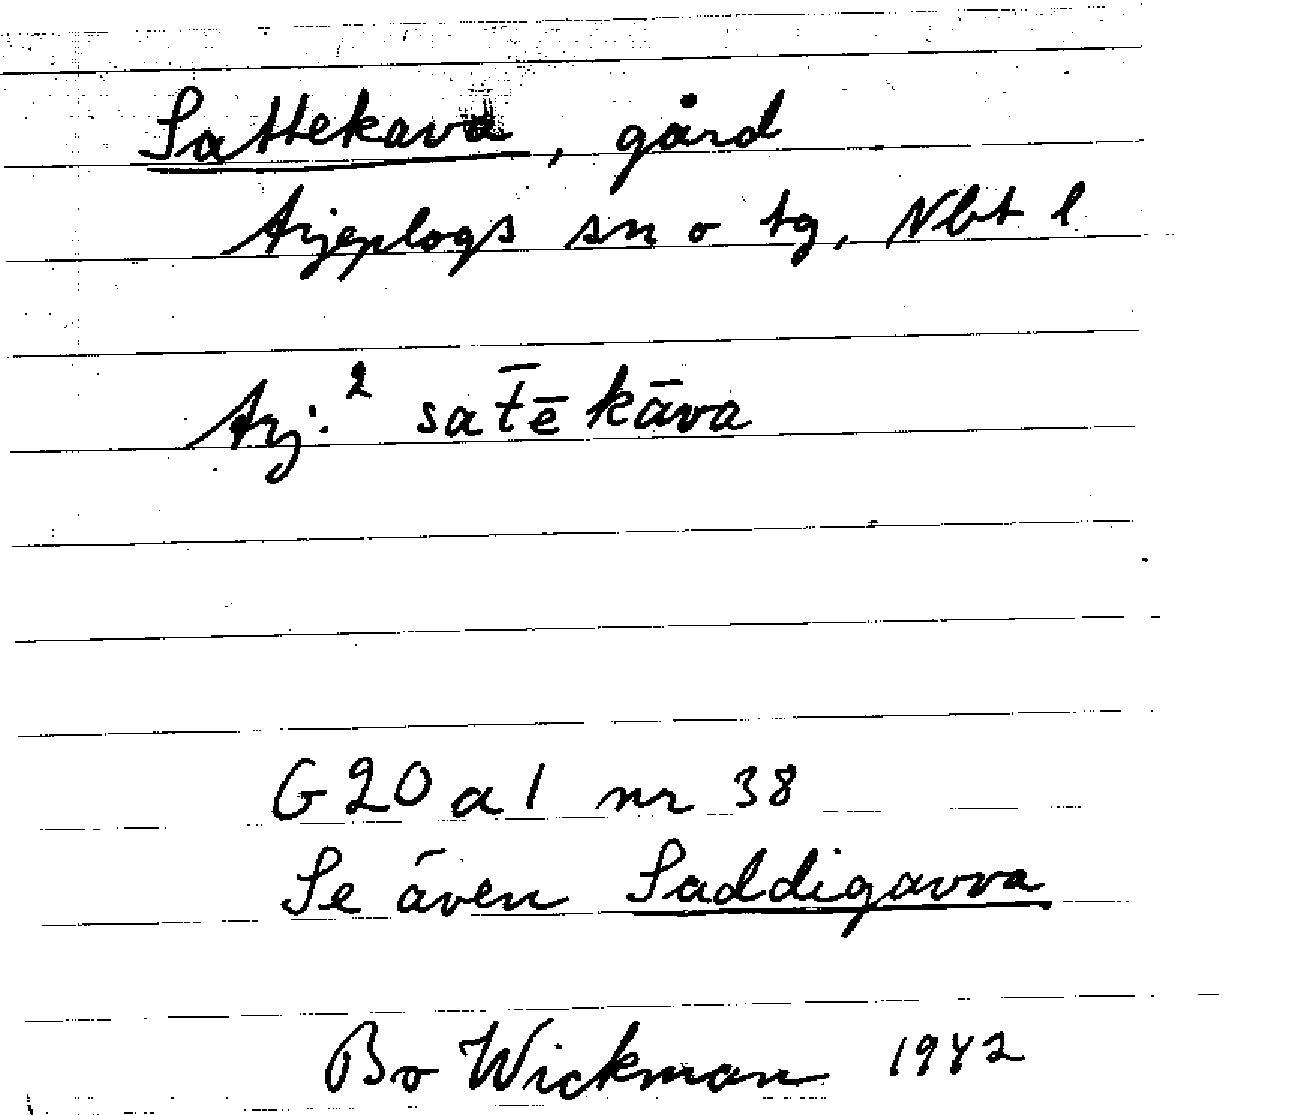 Sattekava, gård
Arjeplogs sn o tg, Nbt l
Arj:² sat̄ēkāva
G20a1 nr 38
Se även Saddigavva
Bo Wickman 1942